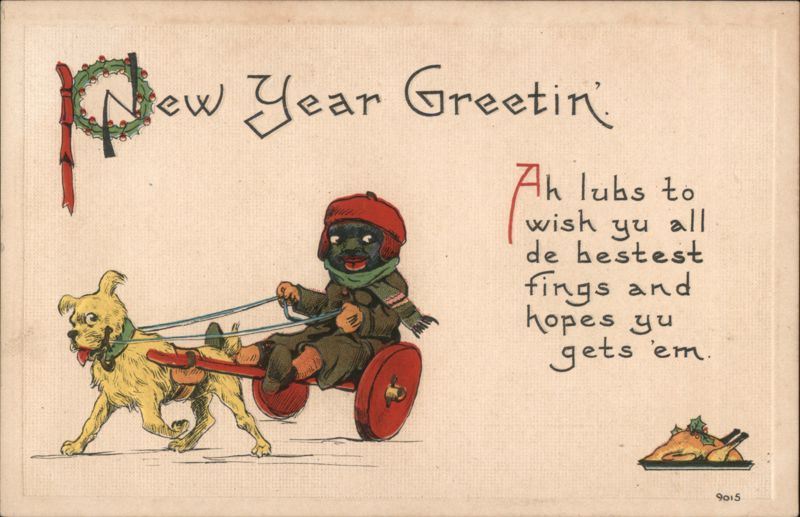 New Year Greetin'.
Ah lubs to
wish yu all
de bestest
fings and
hopes yu
gets 'em.
9015